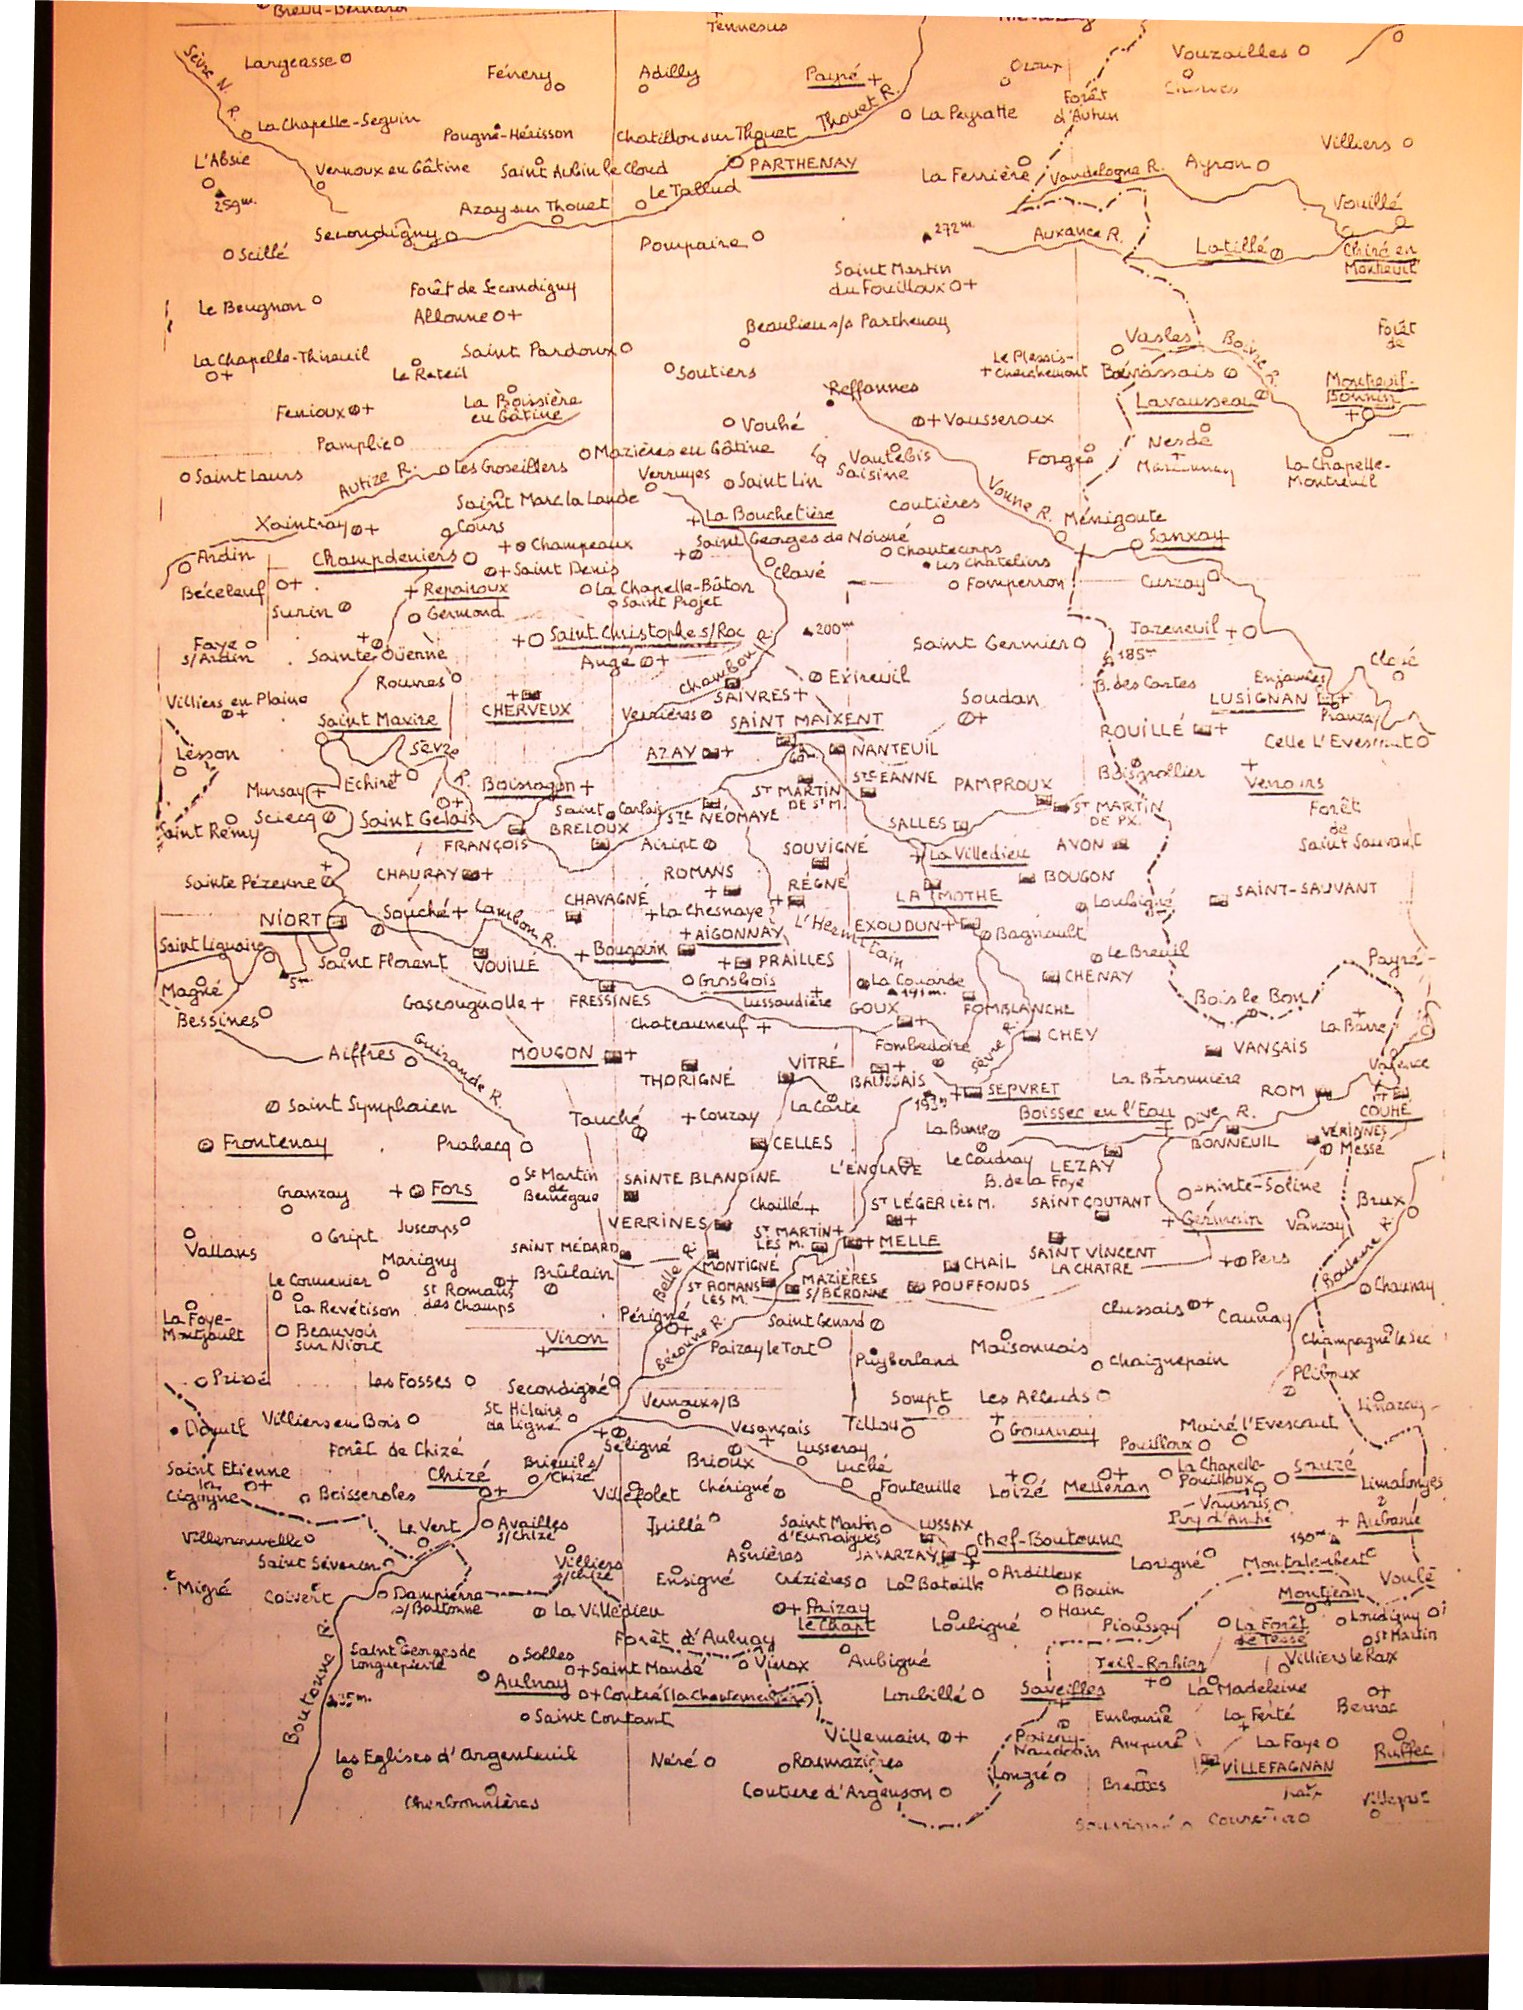 Tennesus
Largeasse
Fénery
Adilly
Payré
Vouzailles
Sèvre N. R.
La Chapelle-Seguin
Pougne-Hérisson
Chatillon sur Thouet
Thouet R.
La Peyratte
Forêt
d'Autun
Villiers
L'Absie
259m.
Vernoux en Gâtine
Saint Aubin le Cloud
PARTHENAY
La Ferrière
Vandelogne R.
Ayron
Azay sur Thouet
Le Tallud
Vouillé
Secondigny
Scillé
Pompaire
272m.
Auxance R.
Latillé
Chiré en
Montreuil
Saint Martin
du Fouilloux
Le Beugnon
Forêt de Secondigny
Allonne
Beaulieu s/s Parthenay
Vasles
Boivre R.
Forêt
de
La Chapelle-Thireuil
Le Reteil
Saint Pardoux
Soutiers
Le Plessis-
Cherchemont
Benassais
Montreuil-
Bonnin
Reffannes
Lavausseau
Fenioux
La Boissière
en Gâtine
Vouhé
Vausseroux
Pamplie
Mazières en Gâtine
Vautebis
Saisine
Forges
Nesdé
La Chapelle-
Montreuil
Saint Laurs
Autize R.
Les Groseillers
Verruyes
Saint Lin
Saint Marc la Lande
Coutières
Vonne R.
Ménigoute
Sanxay
Xaintray
Cours
La Bouchetière
Saint Georges de Noisné
Ardin
Champdeniers
Champeaux
Chantecorps
Les Chateliers
Saint Denis
Clavé
Fomperron
Curzay
Béceleuf
Surin
Repairoux
Germond
La Chapelle-Bâton
Saint Projet
Faye
s/Ardin
Sainte Ouenne
Saint Christophe s/Roc
200m
Saint Germier
Jazeneuil
Augé
Chambon R.
185m
Rouvres
Exireuil
B. des Cartes
Enjambes
LUSIGNAN
Villiers en Plaine
CHERVEUX
SAIVRES
Soudan
Pranzay
Saint Maxire
Verrières
SAINT MAIXENT
ROUILLÉ
Celle L'Evescaut
Sèvre
R.
AZAY
NANTEUIL
Echiré
Boisragon
ST MARTIN
DE ST M.
STE EANNE
PAMPROUX
Boisgrollier
Venours
Mursay
Sciecq
Saint Gelais
Saint Carlais
STE NÉOMAYE
ST MARTIN
DE PX.
Forêt
de
Saint Sauvant
Saint Rémy
FRANÇOIS
BRELOUX
Aiript
SOUVIGNÉ
SALLES
La Villedieu
AVON
Sainte Pézenne
CHAURAY
ROMANS
RÉGNÉ
BOUGON
SAINT-SAUVANT
NIORT
Souché
Lambon R.
CHAVAGNÉ
La Chesnaye
LA MOTHE
Loubigné
L'Hermitain
EXOUDUN
Bagnault
AIGONNAY
Saint Liguaire
Saint Florent
VOUILLÉ
Bougouin
PRAILLES
Le Breuil
5m.
Magné
Grosbois
La Couarde
191m.
CHENAY
Payré
Bessines
Gascougnolle
FRESSINES
Lussaudière
GOUX
FOMBLANCHE
Bois le Bon
Chateauneuf
La Barre
Aiffres
Guirande R.
MOUGON
Fombedoire
Sèvre R.
CHEY
VANÇAIS
THORIGNÉ
VITRÉ
BAUSSAIS
SEPVRET
La Baronnière
ROM
Saint Symphorien
La Carte
193m
Boissec en l'Eau
Dive R.
COUHÉ
Frontenay
Prahecq
Touché
Couzay
CELLES
La Burse
BONNEUIL
Messé
L'ENCLAVE
Le Coudray
B. de la Foye
LEZAY
Granzay
FORS
St Martin
de
Bernegoue
SAINTE BLANDINE
Chaillé
ST LÉGER LÈS M.
SAINT COUTANT
Sainte-Soline
Brux
Vallans
Gript
Juscorps
VERRINES
ST MARTIN
LES M.
MELLE
Germain
Vanzay
Marigny
SAINT MÉDARD
Brûlain
Belle R.
MONTIGNÉ
CHAIL
SAINT VINCENT
LA CHATRE
Pers
Bouleure R.
Le Cormenier
La Revétison
St Romans
des Champs
ST ROMANS
LES M.
MAZIÈRES
S/BERONNE
POUFFONDS
Chaunay
La Foye-
Montjault
Beauvoir
sur Niort
Viron
Périgné
Béronne R.
Saint Genard
Clussais
Caunay
Champagné le Sec
Paizay le Tort
Puyberland
Maisonnais
Chaignepain
Pliboux
Les Fosses
Secondigné
Vernoux s/B
Sompt
Les Alleuds
Linazay
Villiers en Bois
St Hilaire
de Ligné
Vesançais
Tillou
Gournay
Mairé l'Evescaut
Forêt de Chizé
Séligné
Brioux
Lusseray
Luché
Pouilloux
La Chapelle-
Pouilloux
Sauzé
Saint Etienne
la
Cigogne
Boisseroles
Chizé
Brieuil s/
Chizé
Villefolet
Chérigné
Fonteuille
Loizé
Melleran
Limalonges
Puy d'Anché
Villenouvelle
Le Vert
Availles
s/Chizé
Juillé
Saint Martin
d'Entraigues
LUSSAX
Chef-Boutonne
150m.
Aubanie
Saint Séverin
Villiers
s/Chizé
Asnières
JAVARZAY
Lorigné
Montalembert
Migré
Coivert
Dampierre
s/Boutonne
La Villedieu
Ensigné
Crézières
La Bataille
Ardilleux
Bouin
Montjean
Voulé
Paizay
le Chapt
Loubigné
Hanc
Pioussay
La Forêt
de Tessé
Loudigny
St Martin
Forêt d'Aulnay
Boutonne R.
Saint Georges de
Longuepierre
Solles
Saint Mandé
Vinax
Aubigné
Villiers le Roux
Aulnay
Contré (la Chantemerlière)
Loubillé
Saveilles
La Madeleine
Bernac
35m.
Saint Coutant
Villemain
Paizay-
Naudouin
Embourie
La Ferté
Les Eglises d'Argenteuil
Néré
Romazières
Ampuré
La Faye
Ruffec
Couture d'Argenson
Longré
Brettes
VILLEFAGNAN
Cherbonnières